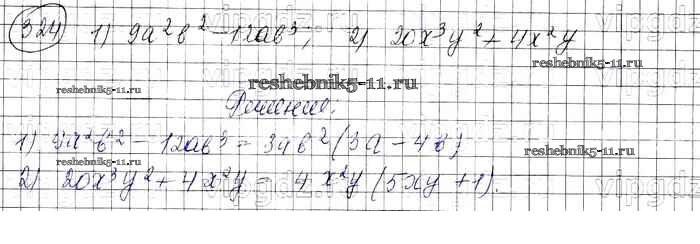 324 1) 9a²b² - 12ab³; 2) 20x³y² + 4x²y
reshebnik5-11.ru reshebnik5-11.ru reshebnik5-11.ru
Решение:
1) 9a²b² - 12ab³ = 3ab²(3a - 4b);
reshebnik5-11.ru reshebnik5-11.ru
2) 20x³y² + 4x²y = 4x²y(5xy + 1).